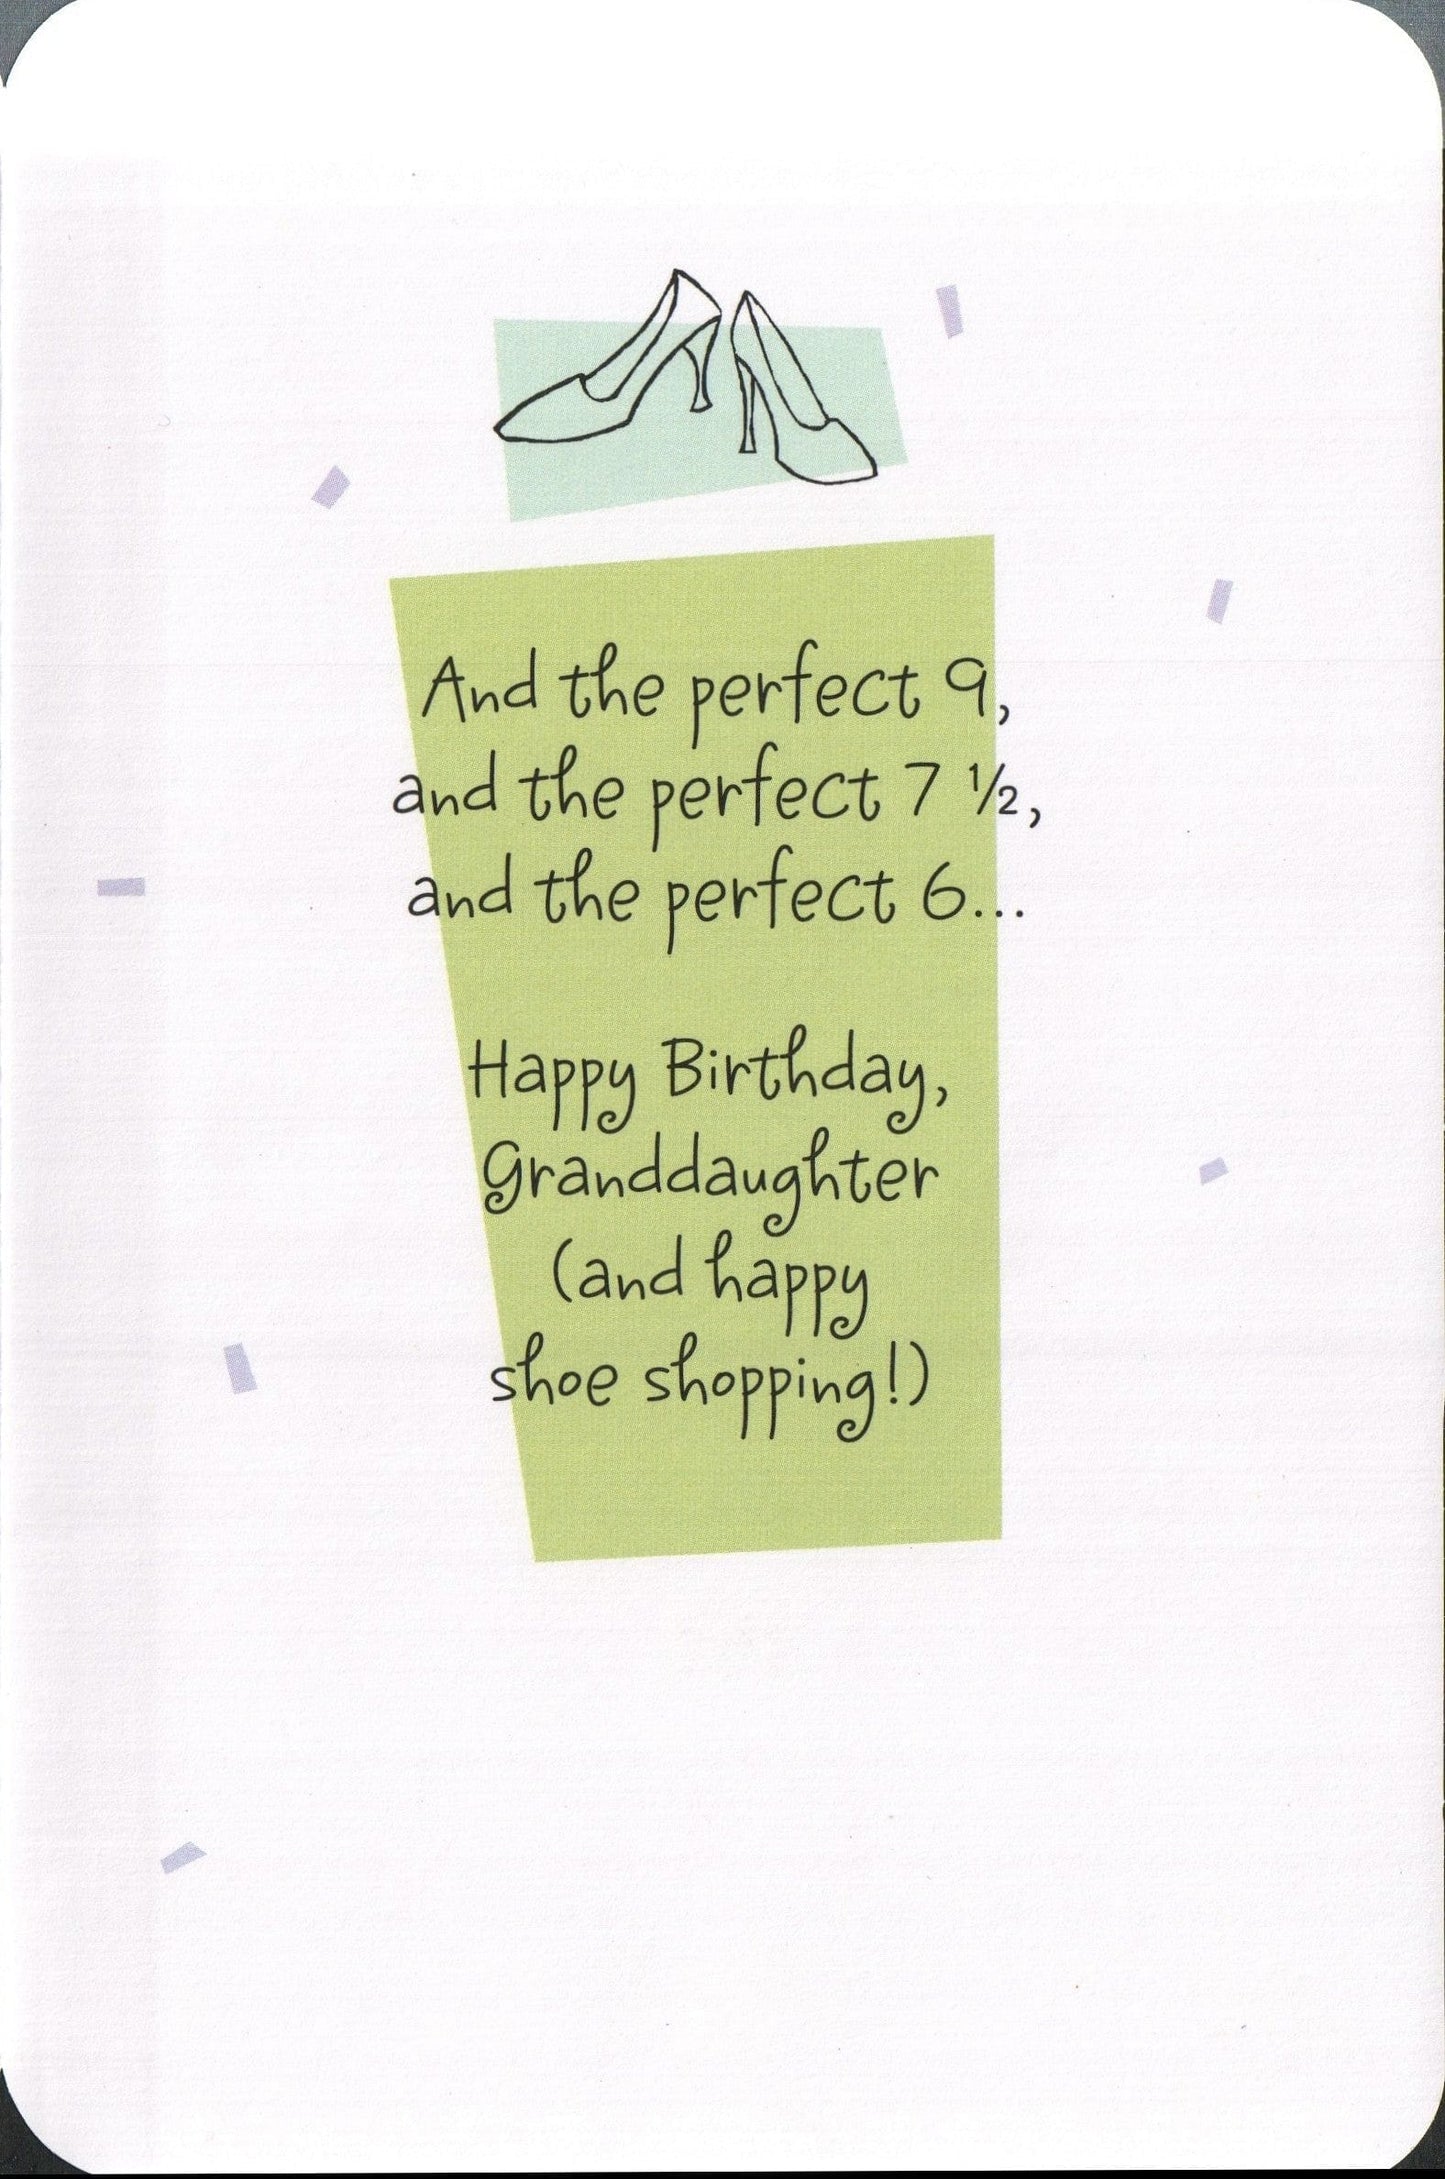 And the perfect 9,
and the perfect 7 ½,
and the perfect 6...
Happy Birthday,
Granddaughter
(and happy
shoe shopping!)